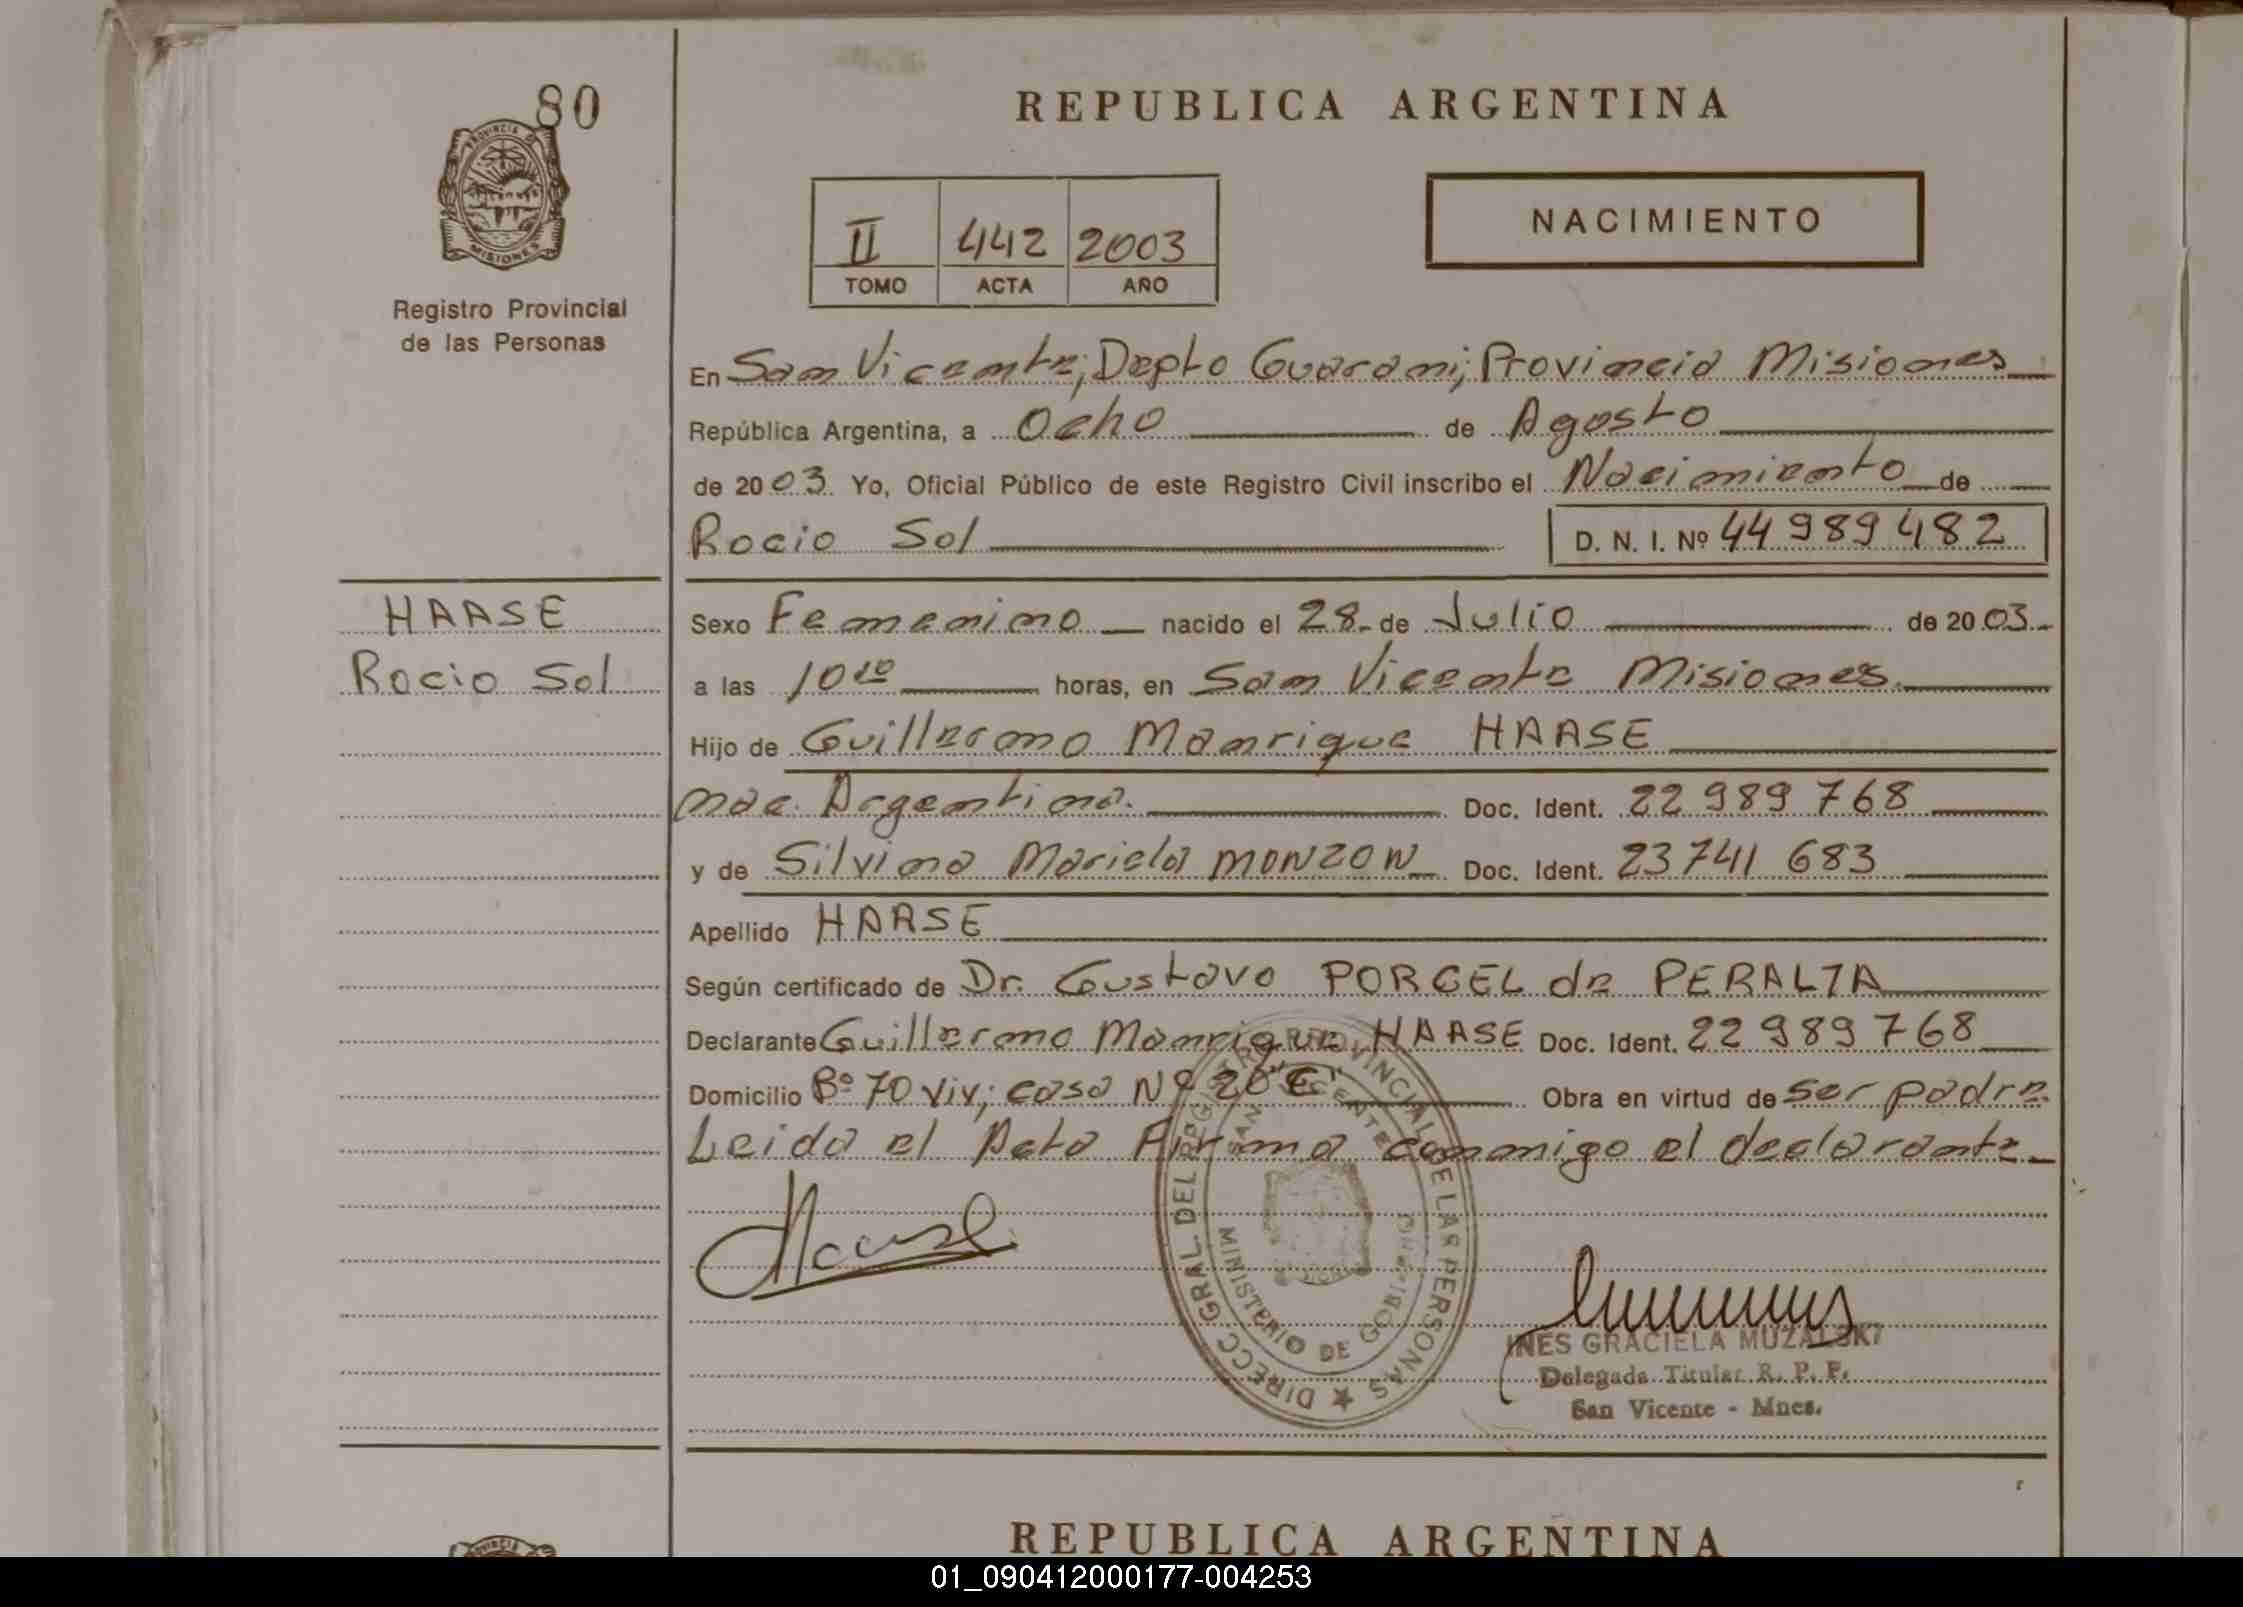 80
PROVINCIA DE
MISIONES
Registro Provincial
de las Personas
HAASE
Rocio Sol
REPUBLICA ARGENTINA
II 442 2003
TOMO ACTA AÑO
NACIMIENTO
En San Vicente; Depto Guarani; Provincia Misiones
República Argentina, a Ocho de Agosto
de 2003 Yo, Oficial Público de este Registro Civil inscribo el Nacimiento de
Rocio Sol D. N. I. Nº 44 989 482
Sexo Femenino nacido el 28 de Julio de 2003
a las 10 10 horas, en San Vicente Misiones
Hijo de Guillermo Manrique HAASE
nac. Argentina. Doc. Ident. 22 989 768
y de Silvina Mariela MONZON Doc. Ident. 23 741 683
Apellido HAASE
Según certificado de Dr. Gustavo PORCEL de PERALTA
Declarante Guillermo Manrique HAASE Doc. Ident. 22 989 768
Domicilio Bº 70 viv; casa Nº 20 "C" Obra en virtud de ser padre
Leida el Acta Firma conmigo el declarante
Haase
DIRECC GRAL. DEL REGISTRO PROVINCIAL DE LAR PERSONAS
SAN VICENTE
MINISTERIO DE GOBIERNO
INES GRACIELA MUZALSKI
Delegada Titular R. P. P.
San Vicente - Mnes.
REPUBLICA ARGENTINA
01_090412000177-004253